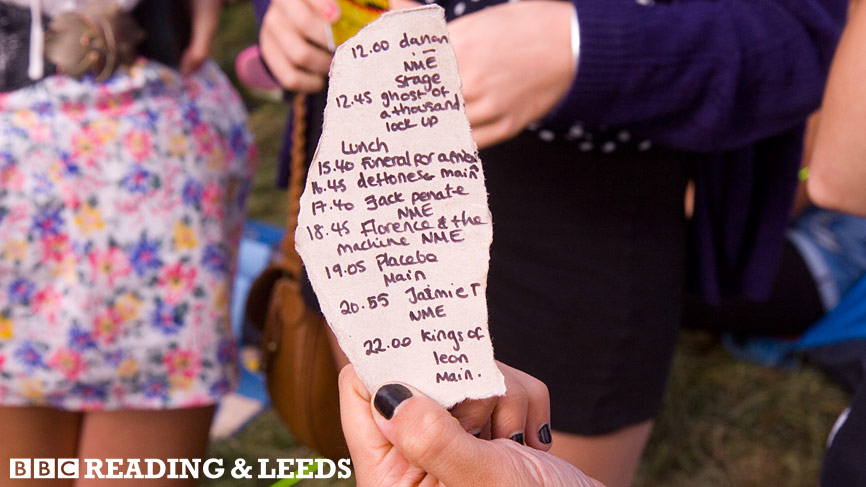 12.00 danan
NME
Stage
12.45 ghost of
a thousand
lock up
Lunch
15.40 Funeral for a friend
16.45 deftoness main
17.40 Jack penate
NME
18.45 Florence & the
machine NME
19.05 Placebo
Main
20.55 Jaimie T
NME
22.00 kings of
leon
Main.
BBC READING & LEEDS